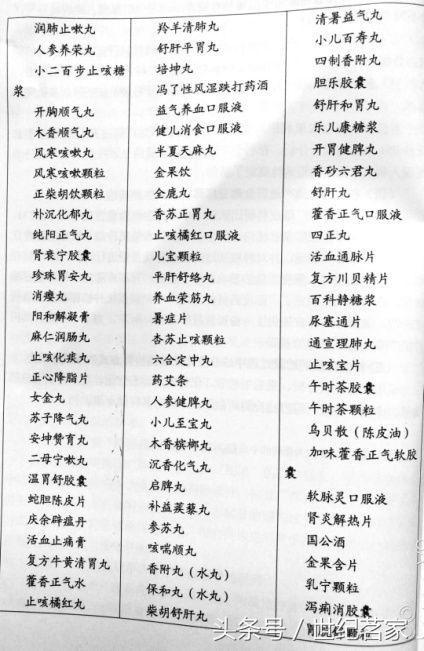 润肺止嗽丸
人参养荣丸
小二百步止咳糖
浆
开胸顺气丸
木香顺气丸
风寒咳嗽丸
风寒咳嗽颗粒
正柴胡饮颗粒
朴沉化郁丸
纯阳正气丸
肾衰宁胶囊
珍珠胃安丸
消瘿丸
阳和解凝膏
麻仁润肠丸
止咳化痰丸
正心降脂片
女金丸
苏子降气丸
安坤赞育丸
二母宁嗽丸
温胃舒胶囊
蛇胆陈皮片
庆余辟瘟丹
活血止痛膏
复方牛黄清胃丸
藿香正气水
止咳橘红丸
羚羊清肺丸
舒肝平胃丸
培坤丸
冯了性风湿跌打药酒
益气养血口服液
健儿消食口服液
半夏天麻丸
金果饮
全鹿丸
香苏正胃丸
止咳橘红口服液
儿宝颗粒
平肝舒络丸
养血荣筋丸
暑症片
杏苏止咳颗粒
六合定中丸
药艾条
人参健脾丸
小儿至宝丸
木香槟榔丸
沉香化气丸
启脾丸
补益蒺藜丸
参苏丸
咳喘顺丸
香附丸（水丸）
保和丸（水丸）
柴胡舒肝丸
清暑益气丸
小儿百寿丸
四制香附丸
胆乐胶囊
舒肝和胃丸
乐儿康糖浆
开胃健脾丸
香砂六君丸
舒肝丸
藿香正气口服液
四正丸
活血通脉片
复方川贝精片
百科静糖浆
尿塞通片
通宣理肺丸
止咳宝片
午时茶胶囊
午时茶颗粒
乌贝散（陈皮油）
加味藿香正气软胶
囊
软脉灵口服液
肾炎解热片
国公酒
金果含片
乳宁颗粒
泻痢消胶囊
头条号/世纪茗家